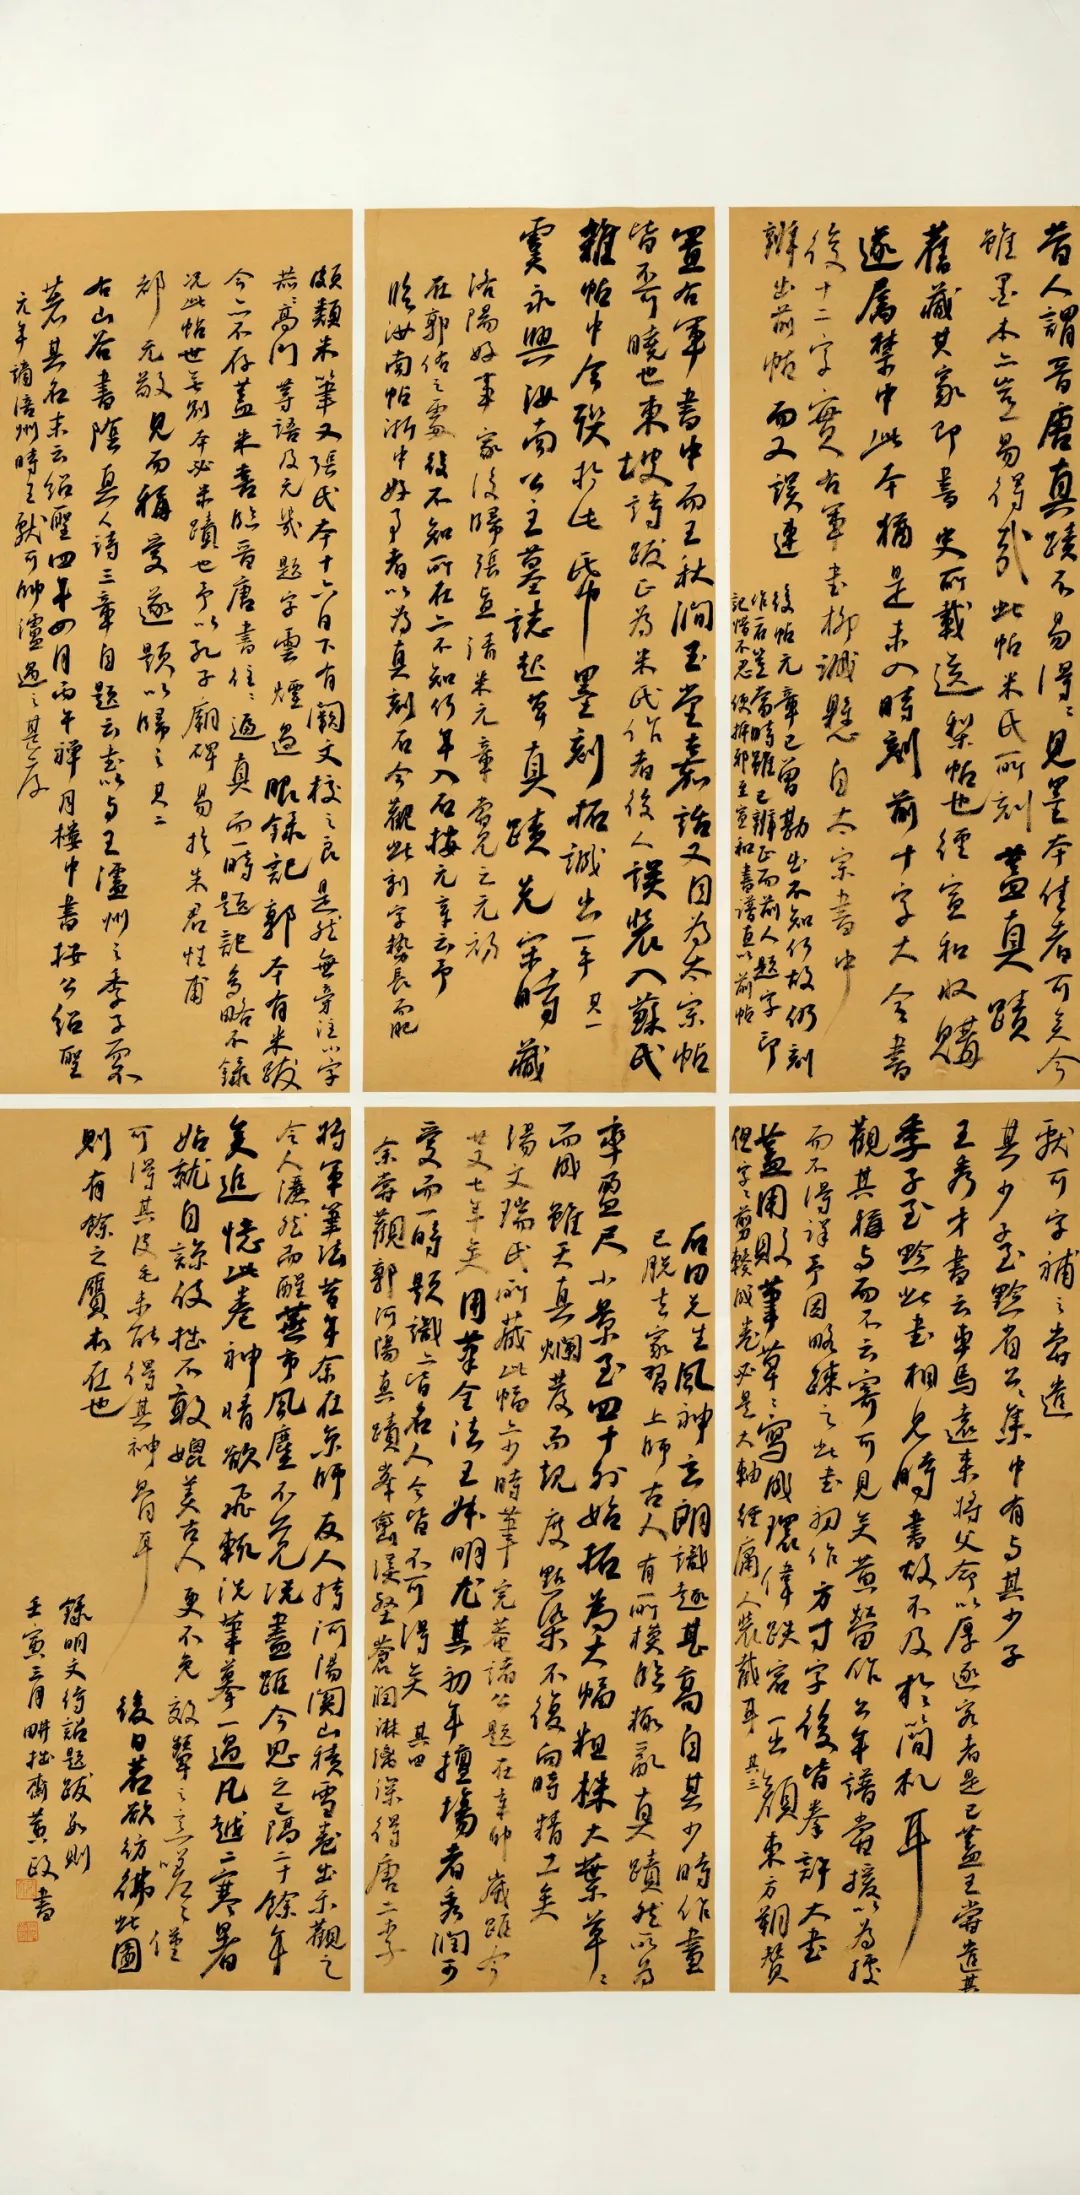 昔人謂晉唐真蹟不易得得見墨本佳者可矣今
雖墨本亦豈易得哉此帖米氏所刻蓋真蹟
舊藏其家即書史所載送梨帖也經宣和收購
遂屬禁中此本猶是未入時刻前十字大令書
後十二字實右軍書柳誠懸自太宗書中
辨出前帖而又誤連
後帖元章已曾勘出不知何故仍刻
作一石豈當時雖已辨正而前人題字印
記惜不忍便拆邪至宣和書譜直以前帖
置右軍書中而王秋澗玉堂嘉話又目為太宗帖
皆不可曉也東坡詩跋正為米氏作者後人誤裝入蘇氏
雜帖中今發於此帋墨刻拓誠出一手其一
虞永興汝南公主墓誌起草真蹟先宋時藏
洛陽好事家後歸張直清米元章嘗見之元祐
在郭佑之處後不知所在亦不知何年入石按元章云予
臨汝南帖浙中好事者以為真刻石今觀此刻字勢長而肥
頗類米筆又張氏本十六日下有闕文校之良是然無旁注小字
恭恭高門等語及元幾題字雲煙過眼錄記郭本有米跋
今亦不存蓋米書臨晉唐書往往逼真而一時題記多略不錄
況此帖世無別本必米蹟也予以孔子廟碑易於朱君性甫
都元敬見而稱愛遂題以歸之其二
右山谷書陰真人詩三章自題云書以與王瀘州之季子而不
著其名末云紹聖四年四月丙午禪月樓中書按公紹聖
元年謫涪州時王獻可帥瀘遇之甚厚
獻可字補之嘗遣
其少子至黔省公公集中有與其少子
王秀才書云車馬遠來將父命以厚逐客者是已蓋王嘗遣其
季子至黔此書相見時書故不及於簡札耳
觀其稱與而不云寄可見矣黃㽦作公年譜當援以為據
而不得詳予因略疏之此書初作方寸字後皆拳許大書
蓋用敗筆草草寫成瓌偉跌宕一出顏東方朔贊
但字字剪綴成卷必是大軸經庸人裝裁耳其三
石田先生風神玄朗識趣甚高自其少時作畫
已脫去家習上師古人有所模臨輒亂真蹟然所為
率盈尺小景至四十外始拓為大幅粗株大葉草草
而成雖天真爛發而規度點染不復向時精工矣
湯文瑞氏所藏此幅亦少時筆完菴諸公題在辛卯歲距今
廿又七年矣用筆全法王叔明尤其初年擅場者秀潤可
愛而一時題識亦皆名人今皆不可得矣其四
余嘗觀郭河陽真蹟峯巒溪壑蒼潤淋漓深得唐二李
將軍筆法昔年余在京師友人持河陽関山積雪卷出示觀之
令人灑然而醒蕪市風塵不覺洗盡距今思之已隔二十餘年
矣追憶此卷神情欲飛輒洗筆摹一過凡越二寒暑
始就自諒伎拙不敢媲美古人更不免效顰之意嗟嗟僅
可得其皮毛未能得其神骨耳後日若欲彷彿此圖
則有餘之贋本在也
錄明文待詔題跋數則
壬寅三月畊拙齋黃政書